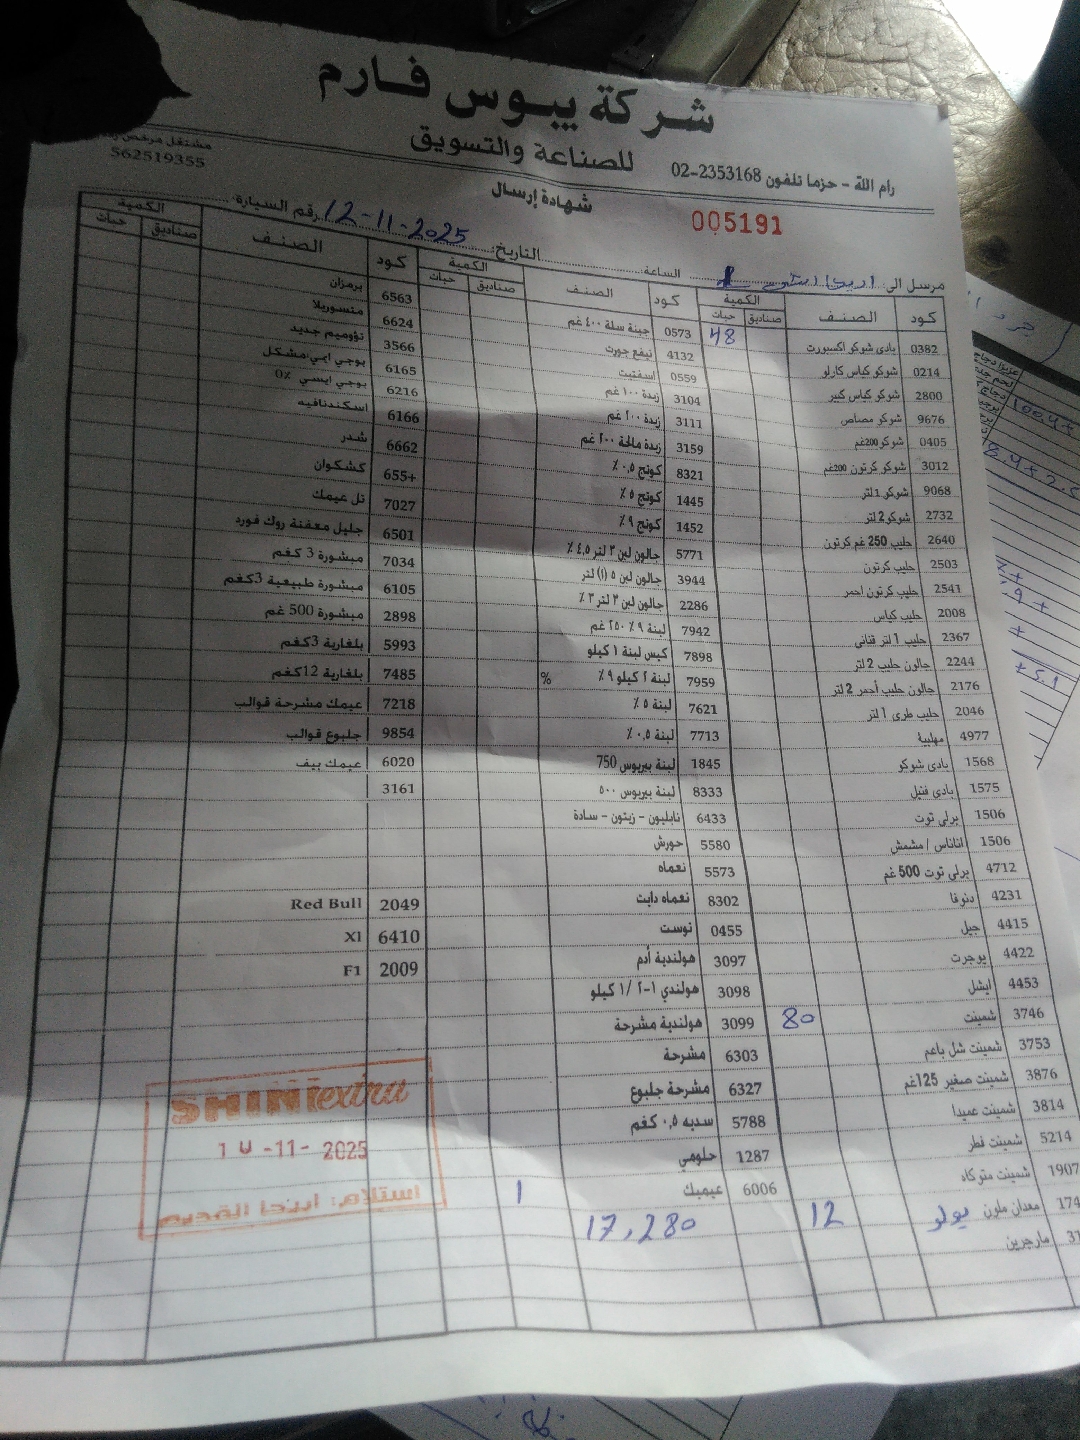 شركة يبوس فارم
للصناعة والتسويق
رام الله - حزما تلفون 02-2353168
مشتغل مرخص
562519355
شهادة إرسال
005191
مرسل الى: اريحا
الساعة:
التاريخ: 12-11-2025
رقم السيارة
كود الصنف الكمية صناديق حبات
0382 بادي شوكو اكسبورت 48
0214 شوكو كياس كارلو
2800 شوكو كياس كبير
9676 شوكو مصاص
0405 شوكو 200غم
3012 شوكو كرتون 200غم
9068 شوكو 1 لتر
2732 شوكو 2 لتر
2640 حليب 250 غم كرتون
2503 حليب كرتون
2541 حليب كرتون احمر
2008 حليب كياس
2367 حليب 1 لتر قناني
2244 جالون حليب 2 لتر
2176 جالون حليب أحمر 2 لتر
2046 حليب طري 1 لتر
4977 مهلبية
1568 بادي شوكو
1575 بادي فنيل
1506 برلي توت
1506 اناناس / مشمش
4712 برلي توت 500 غم
4231 دنونا
4415 جيل
4422 يوجرت
4453 ايشل
3746 شمينت 80
3753 شمينت شل باعم
3876 شمينت صغير 125غم
3814 شمينت عميدا
5214 شمينت قطر
1907 شمينت متوكاه
174 معدان ملون يولو 12
31 مارجرين
كود الصنف الكمية صناديق حبات
0573 جبنة سلة ٤٠٠ غم
4132 نيفع جورت
0559 اسفتيت
3104 زبدة ١٠٠ غم
3111 زبدة ٢٠٠ غم
3159 زبدة مالحة ٢٠٠ غم
8321 كوتج ٠,٥ ٪
1445 كوتج ٥ ٪
1452 كوتج ٩ ٪
5771 جالون لبن ٣ لتر ٤,٥ ٪
3944 جالون لبن ٥ (١) لتر
2286 جالون لبن ٣ لتر ٣ ٪
7942 لبنة ٩ ٪ ٢٥٠ غم
7898 كيس لبنة ١ كيلو
7959 لبنة ٢ كيلو ٩ ٪ %
7621 لبنة ٥ ٪
7713 لبنة ٠,٥ ٪
1845 لبنة بيريوس 750
8333 لبنة بيريوس ٥٠٠
6433 نابليون - زيتون - سادة
5580 حورش
5573 نعماه
8302 نعماه دايت
0455 توست
3097 هولندية أدم
3098 هولندي ١-٢ /١ كيلو
3099 هولندية مشرحة
6303 مشرحة
6327 مشرحة جلبوع
5788 سدبه ٠,٥ كغم
1287 حلومي
6006 عيميك 1
17,280
كود الصنف الكمية صناديق حبات
6563 برمزان
6624 متسوريلا
3566 نؤوميم جديد
6165 بوجي ايمي/مشكل
6216 بوجي ايسي 0%
6166 اسكندنافيه
6662 شدر
655+ كشكوان
7027 تل عيمك
6501 جليل معفنة روك فورد
7034 مبشورة 3 كغم
6105 مبشورة طبيعية 3كغم
2898 مبشورة 500 غم
5993 بلغارية 3كغم
7485 بلغارية 12كغم
7218 عيمك مشرحة قوالب
9854 جلبوع قوالب
6020 عيمك بيف
3161
2049 Red Bull
6410 Xl
2009 F1
SHINI extra
-11- 2025
استلام: اريحا القديم